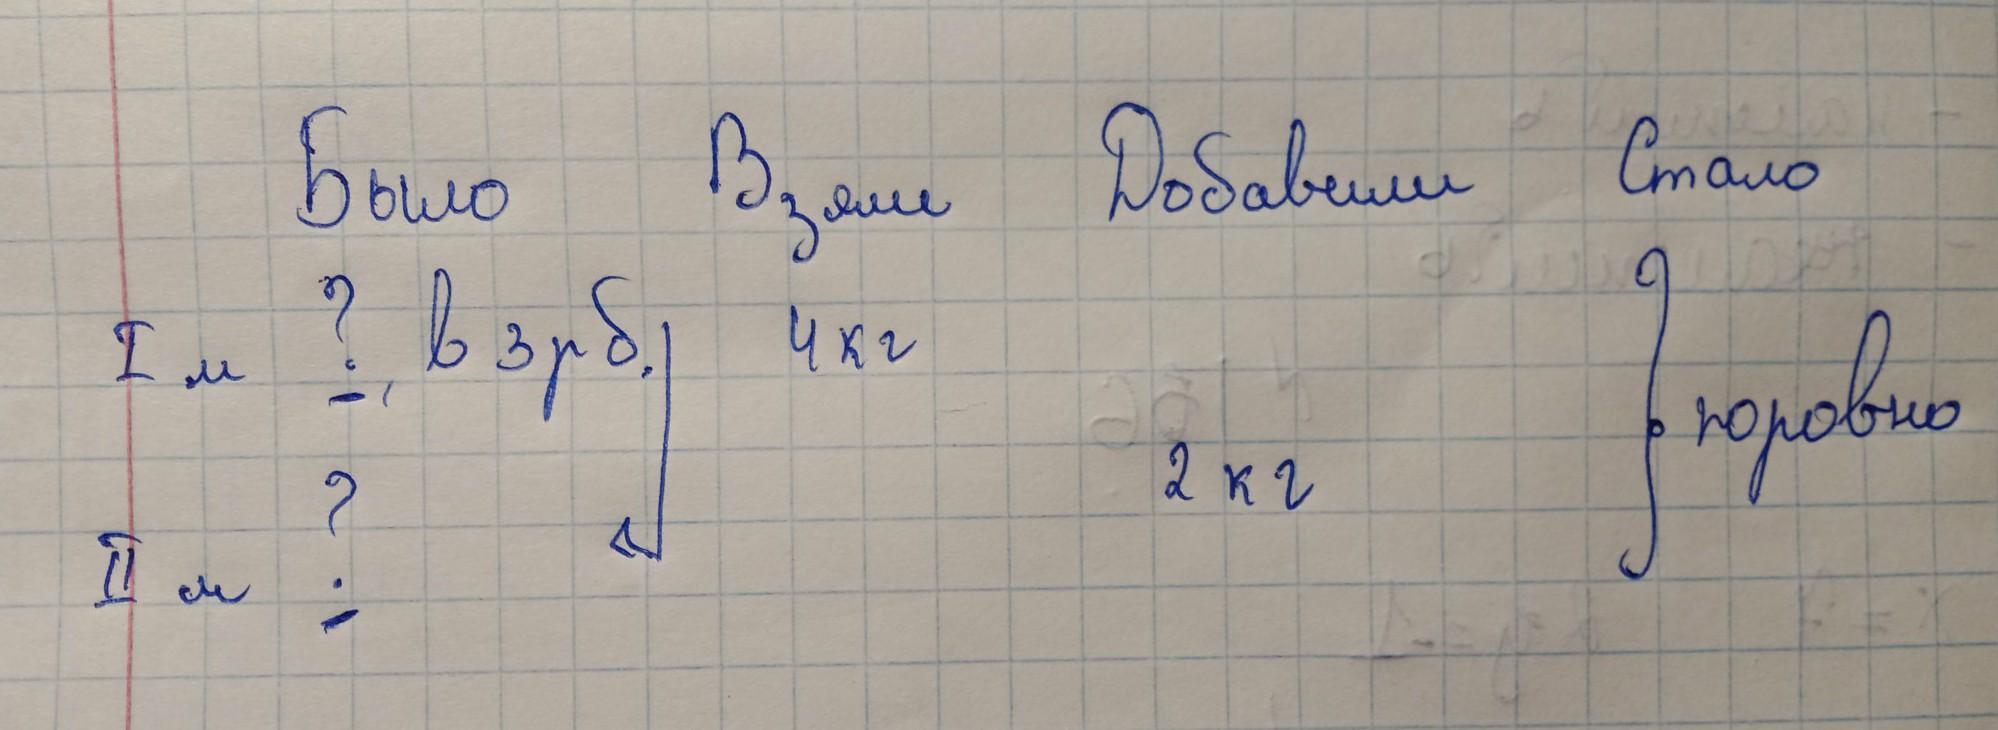 Было Взяли Добавили Стало
I м ?, в 3 р б. 4 кг
поровно
2 кг
II м ?